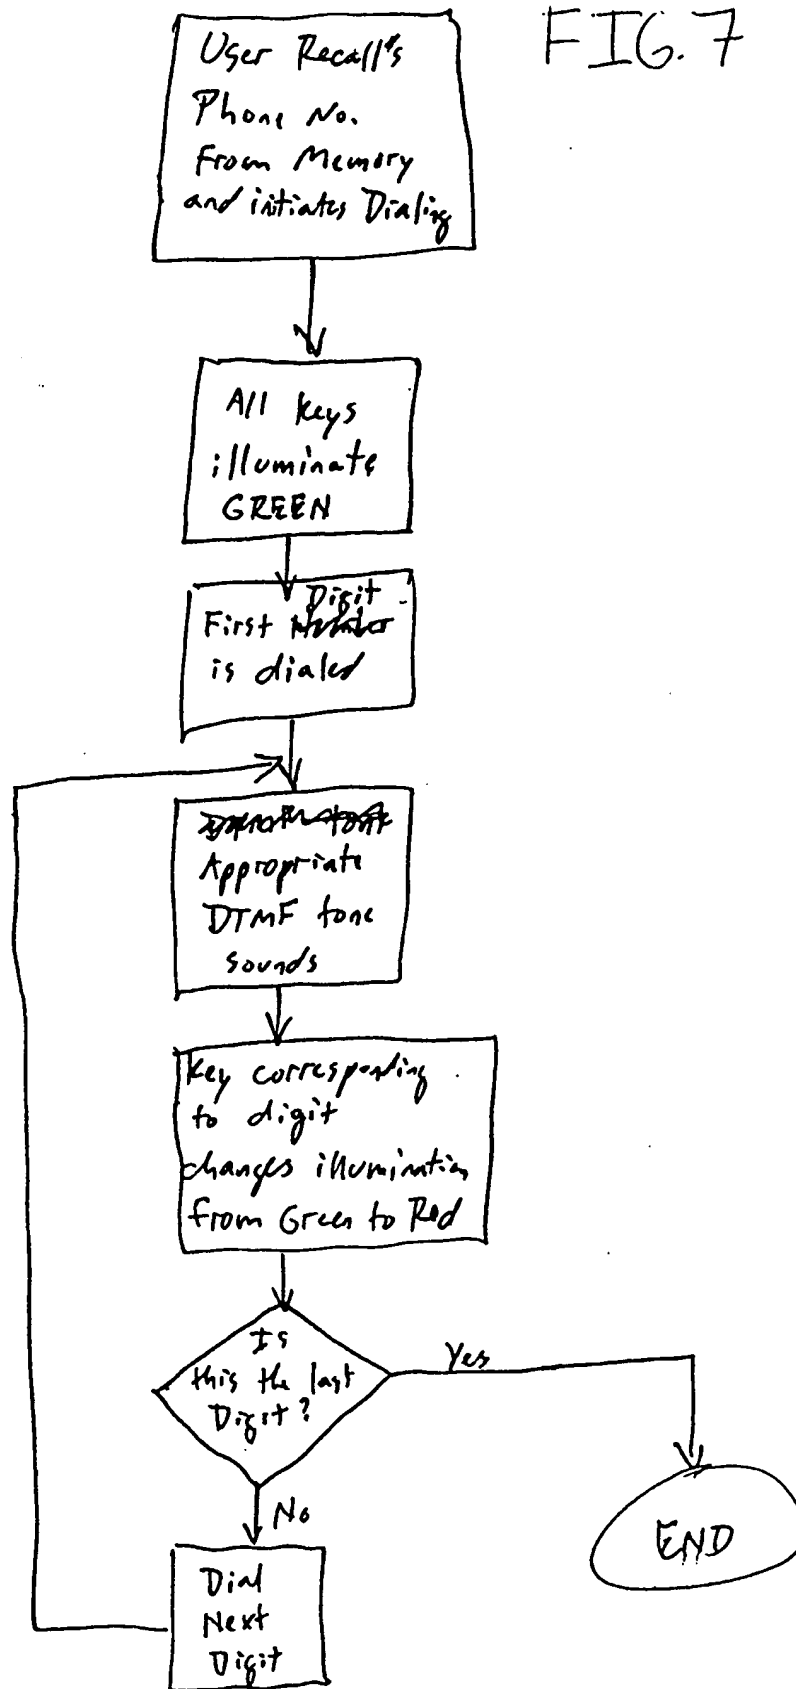 FIG. 7
User Recall's
Phone No.
From Memory
and initiates Dialing
All keys
illuminate
GREEN
First Digit
is dialed
Appropriate
DTMF tone
sounds
Key corresponding
to digit
changes illumination
from Green to Red
Is
this the last
Digit?
Yes
No
END
Dial
Next
Digit